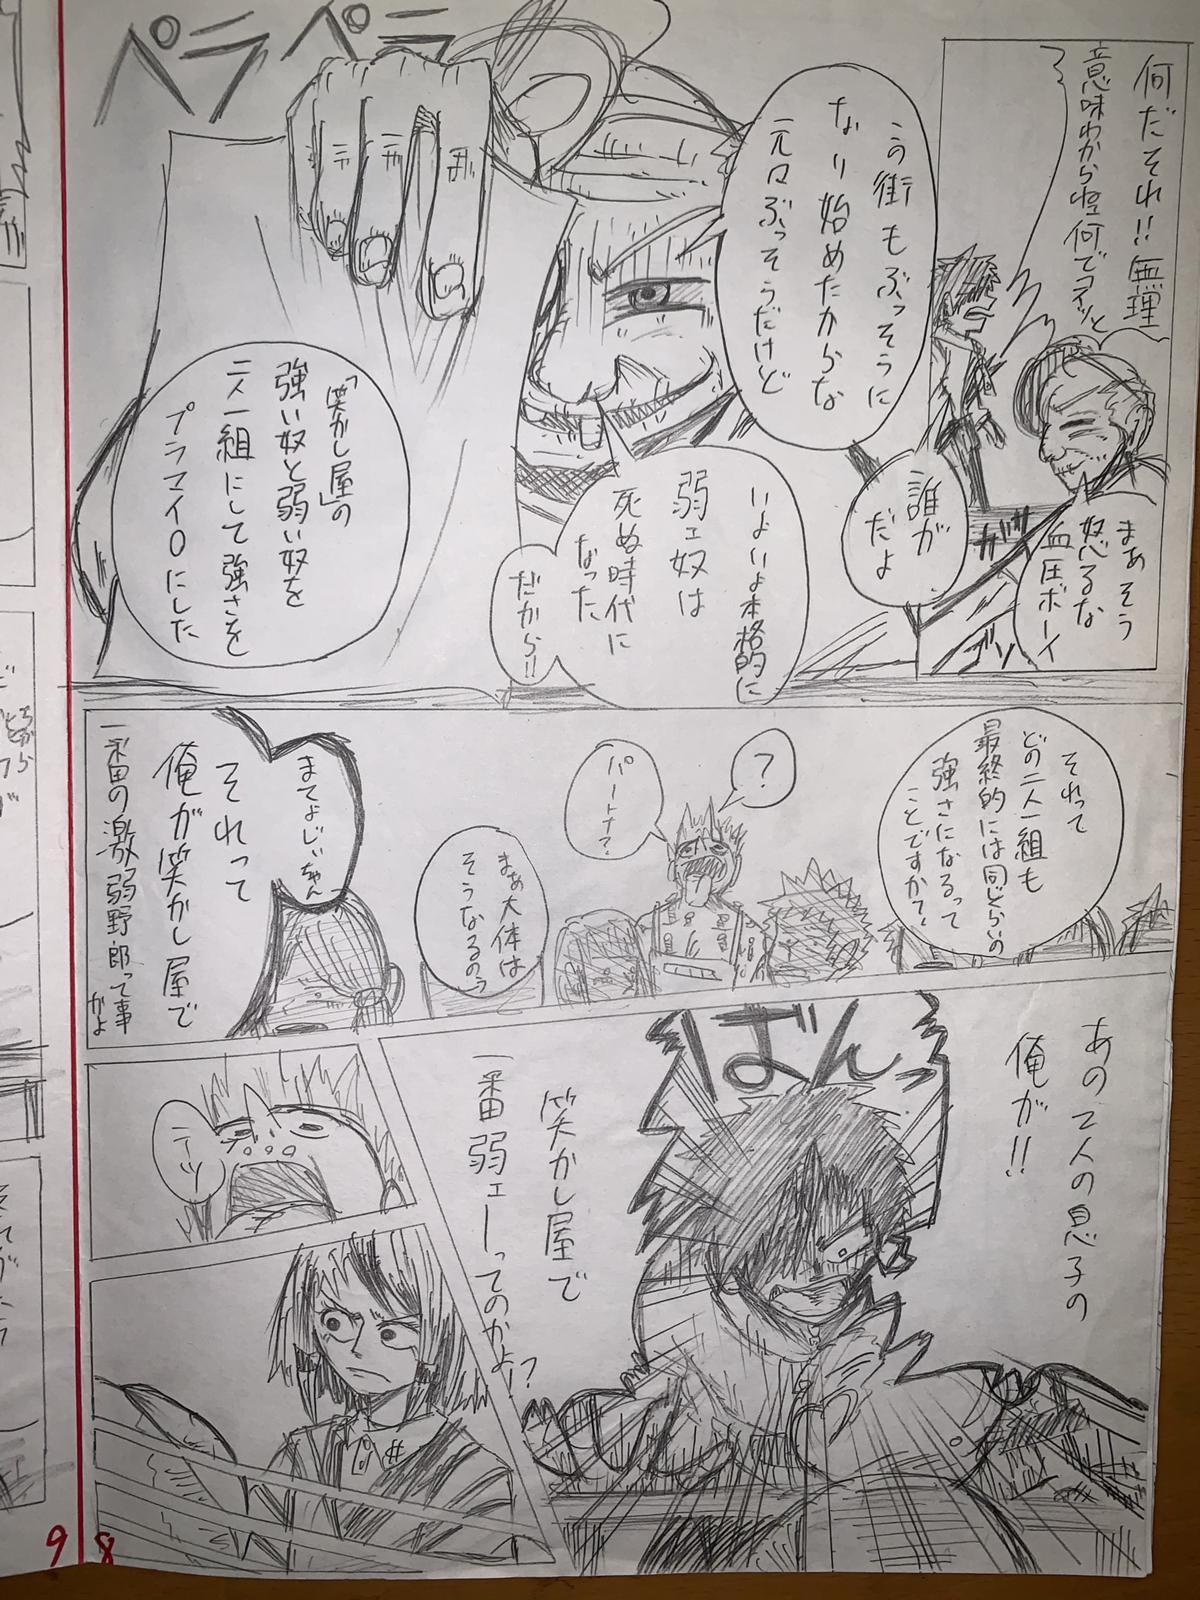 何だそれ!!無理
意味わからねェ何でコイッと
〜〜
まあそう
怒るな
血圧ボーイ
ガサ
ゴソ
誰が
だよ
この街もぶっそうに
なり始めたからな
元々ぶっそうだけど
ペラペラ
いよいよ本格的に
弱ェ奴は
死ぬ時代に
なった
だから!!
「笑かし屋」の
強い奴と弱い奴を
二人一組にして強さを
プラマイ0にした
それって
どの二人一組も
最終的には同じくらいの
強さになるって
ことですか?
?
パートナ?
まぁ大体は
そうなるのう
まてよじいちゃん
それって
俺が笑かし屋で
一番の激弱野郎って事
かよ
あの2人の息子の
俺が!!
ばんっ
笑かし屋で
一番弱ェーってのかよ!?
ニィッ
9
8